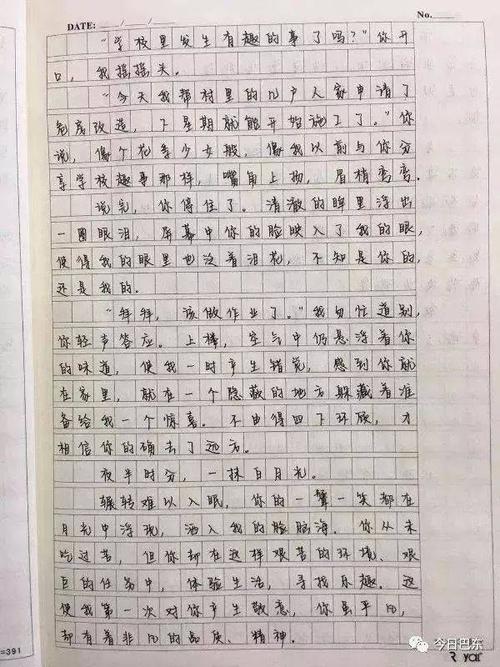 DATE: / /
No.
“学校里发生有趣的事了吗?”你开
口，我摇摇头。
“今天我帮村里的几户人家申请了
危房改造，下星期就能开始施工了。”你
说，像个花季少女般，像我以前与你分
享学校趣事那样，嘴角上扬，眉梢弯弯。
说完，你停住了。清澈的眸里浮出
一圈眼泪，屏幕中你的脸映入了我的眼，
使得我的眼里也泛着泪花，不知是你的，
还是我的。
“拜拜，该做作业了。”我匆忙道别，
你轻声答应。上楼，空气中仍悬浮着你
的味道，使我一时产生错觉，感到你就
在家里，就在一个隐蔽的地方躲藏着准
备给我一个惊喜。不由得四下环顾，才
相信你的确去了远方。
夜半时分，一抹白月光。
辗转难以入眠，你的一颦一笑都在
月光中浮现，洒入我的脑海。你从未
吃过苦，但你却在这样艰苦的环境、艰
巨的任务中，体验生活，寻找乐趣。这
使我第一次对你产生敬意，你虽平凡，
却有着非凡的品质、精神。
=391
今日巴东